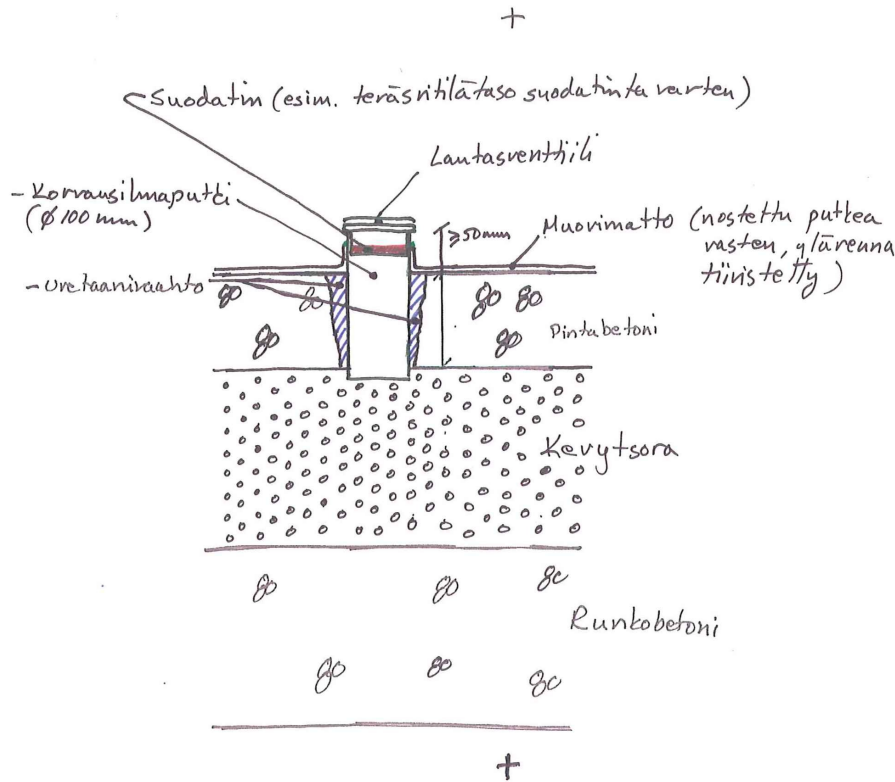 +
Suodatin (esim. teräsritilätaso suodatinta varten)
Lautasventtiili
- Korvausilmaputki
(Ø 100 mm)
≥50mm
Muovimatto (nostettu putkea
vasten, yläreuna
tiivistetty)
- Uretaanivaahto
Pintabetoni
Kevytsora
Runkobetoni
+